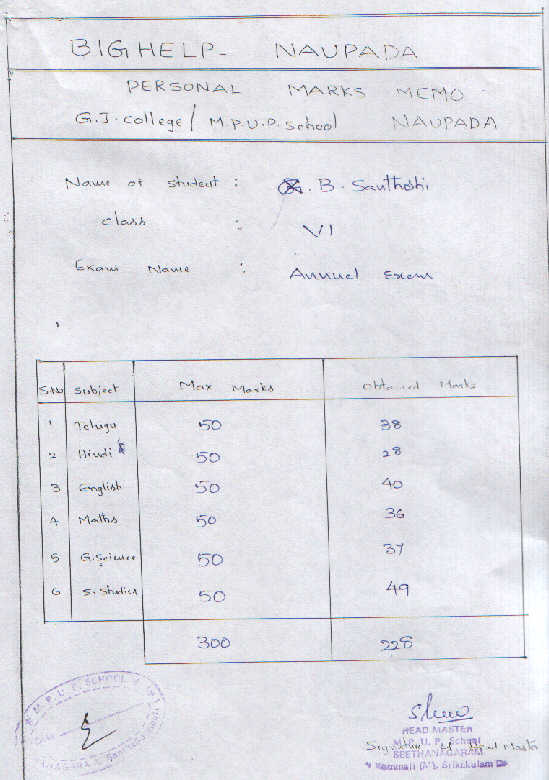 BIGHELP- NAUPADA
PERSONAL MARKS MEMO
G.J. college / M.P.U.P. School NAUPADA
Name of Student : G. B. Santhoshi
class : VI
Exam Name : Annual Exam
S.No Subject Max Marks Obtained Marks
1 Telugu 50 38
2 Hindi 50 28
3 English 50 40
4 Maths 50 36
5 G.Science 50 37
6 S. Studies 50 49
300 228
M.P.U.P. SCHOOL
HEAD MASTER
M.P. U. P. School
Signature of Head Master
SEETHANAGARAM
Srikakulam Dt